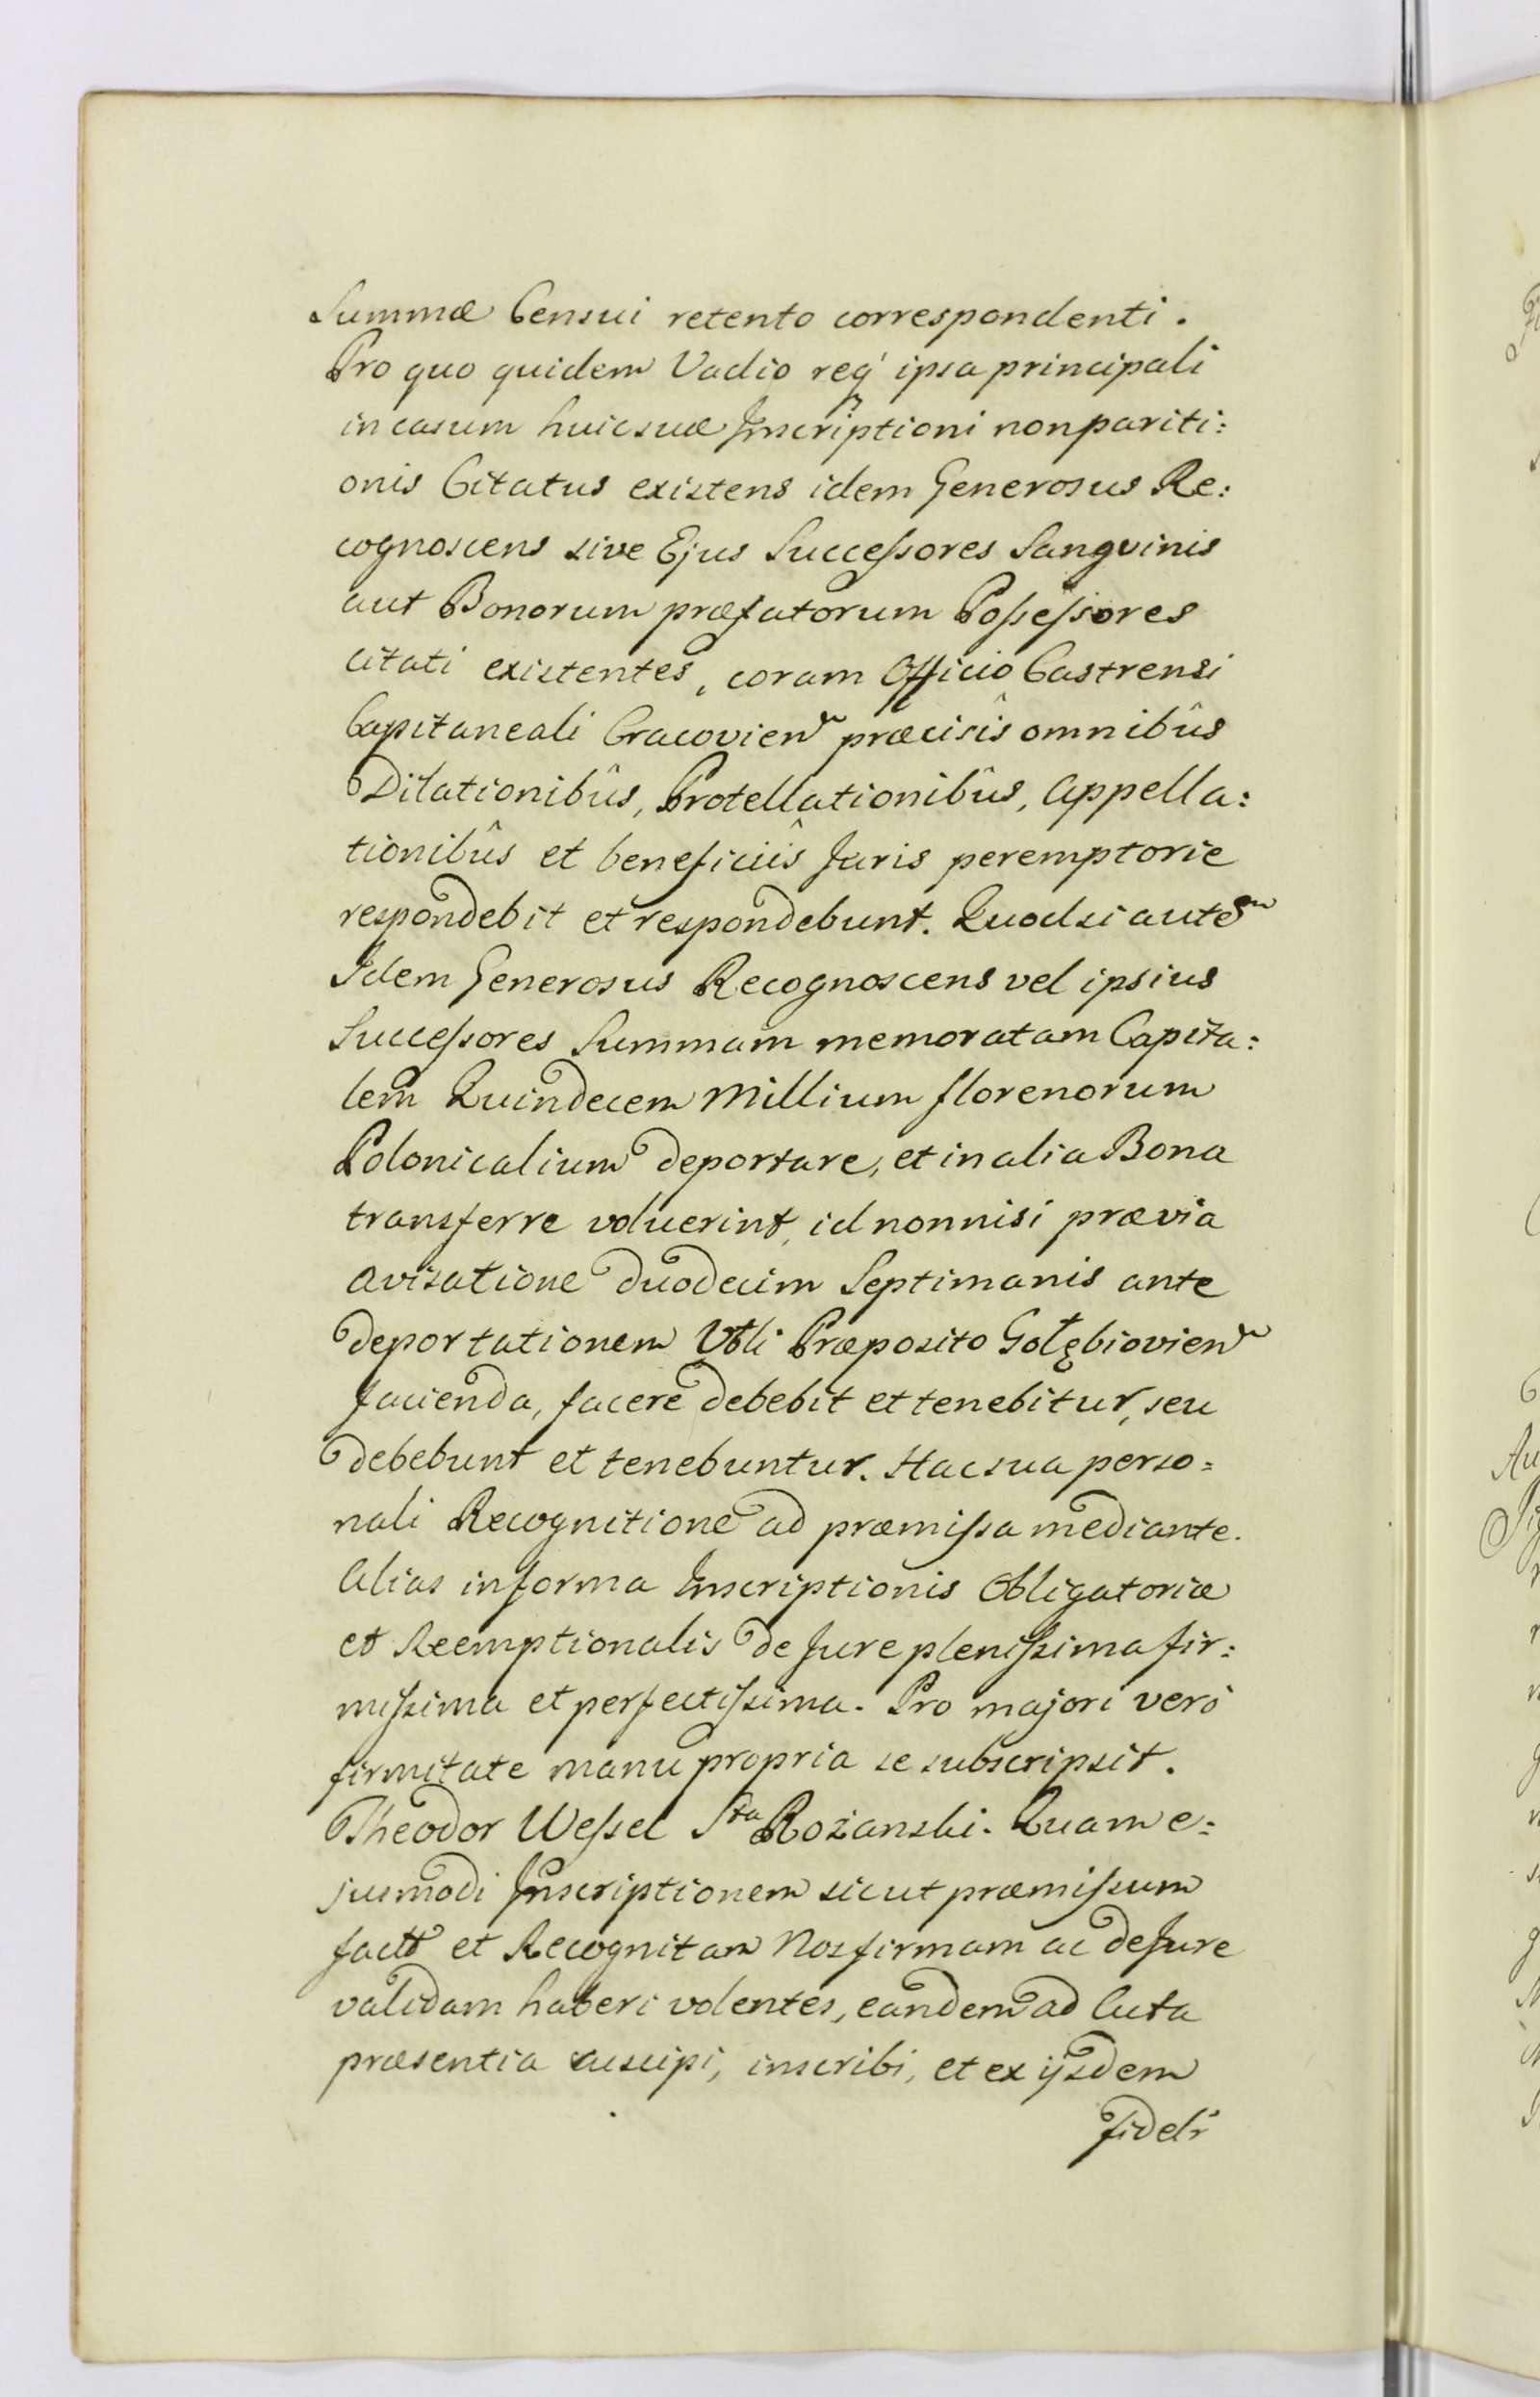 Summæ Censui retento correspondenti.
Pro quo quidem Vadio req' ipsa principali
in casum huic suæ Inscriptioni non pariti:
onis Citatus existens idem Generosus Re:
cognoscens sive Ejus Successores Sanguinis
aut Bonorum præfatorum Possessores
citati existentes, coram Officio Castrensi
Capitaneali Cracovien præcisîs omnibûs
Dilationibûs, Protellationibûs, Appella:
tionibûs et beneficiîs Juris peremptorie
respondebit et respondebunt. Quodsi autem
Idem Generosus Recognoscens vel ipsius
Successores Summam memoratam Capita:
lem Quindecem Millium florenorum
Polonicalium deportare, et in alia Bona
transferre voluerint, id nonnisi prævia
avisatione duodecim Septimanis ante
deportationem Vbli Præposito Gołębiovien
facienda, facere debebit et tenebitur, seu
debebunt et tenebuntur. Hac sua perso=
nali Recognitione ad præmissa mediante.
Alias in forma Inscriptionis Obligatoriæ
et Reemptionalis de Jure plenissima fir:
missima et perfectissima. Pro majori verò
firmitate manu propria se subscripsit.
Theodor Wessel Sta Rożanski. Quam e:
jusmodi Inscriptionem sicut præmissum
factã et Recognitam Nos firmam ac de Jure
validam haberi volentes, eandem ad Acta
præsentia suscipi, inscribi, et ex ijsdem
fideli